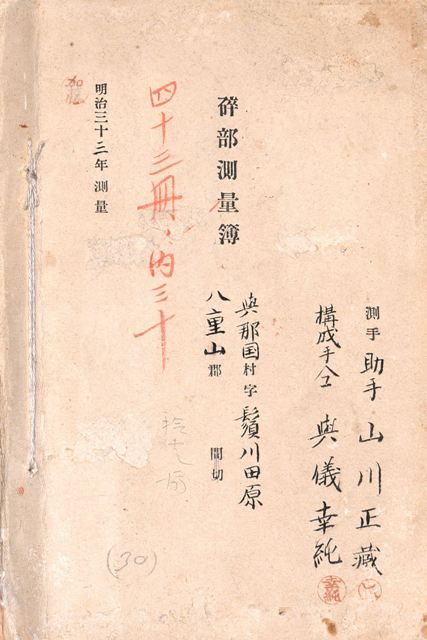 測手 助手 山川正藏
構成手仝 與儀幸純
與那国村字鬚川田原
八重山郡 間切
碎部測量簿
四十三冊ノ内三十
明治三十三年 測量
(30)